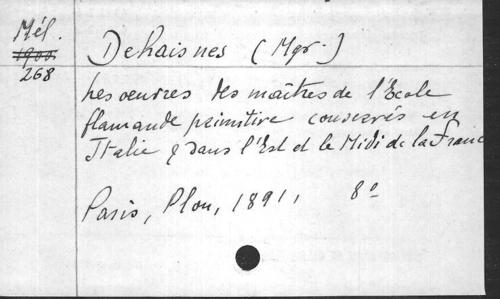 Mél.
1900
268
Dehaisnes (Mgr.)
Les oeuvres des maîtres de l'Ecole
flamande primitive conservés en
Italie & dans l'Est et le Midi de la Franc
Paris, Plon, 1891, 8º